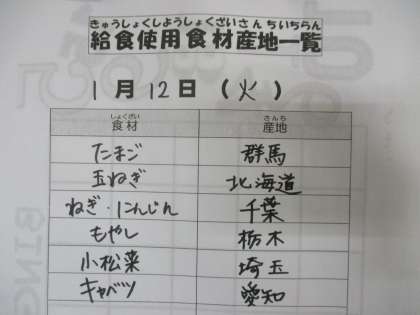 きゅうしょくしようしょくざいさんちいちらん
給食使用食材産地一覧
1月12日(火)
しょくざい さんち
食材 産地
たまご 群馬
玉ねぎ 北海道
ねぎ・にんじん 千葉
もやし 栃木
小松菜 埼玉
キャベツ 愛知